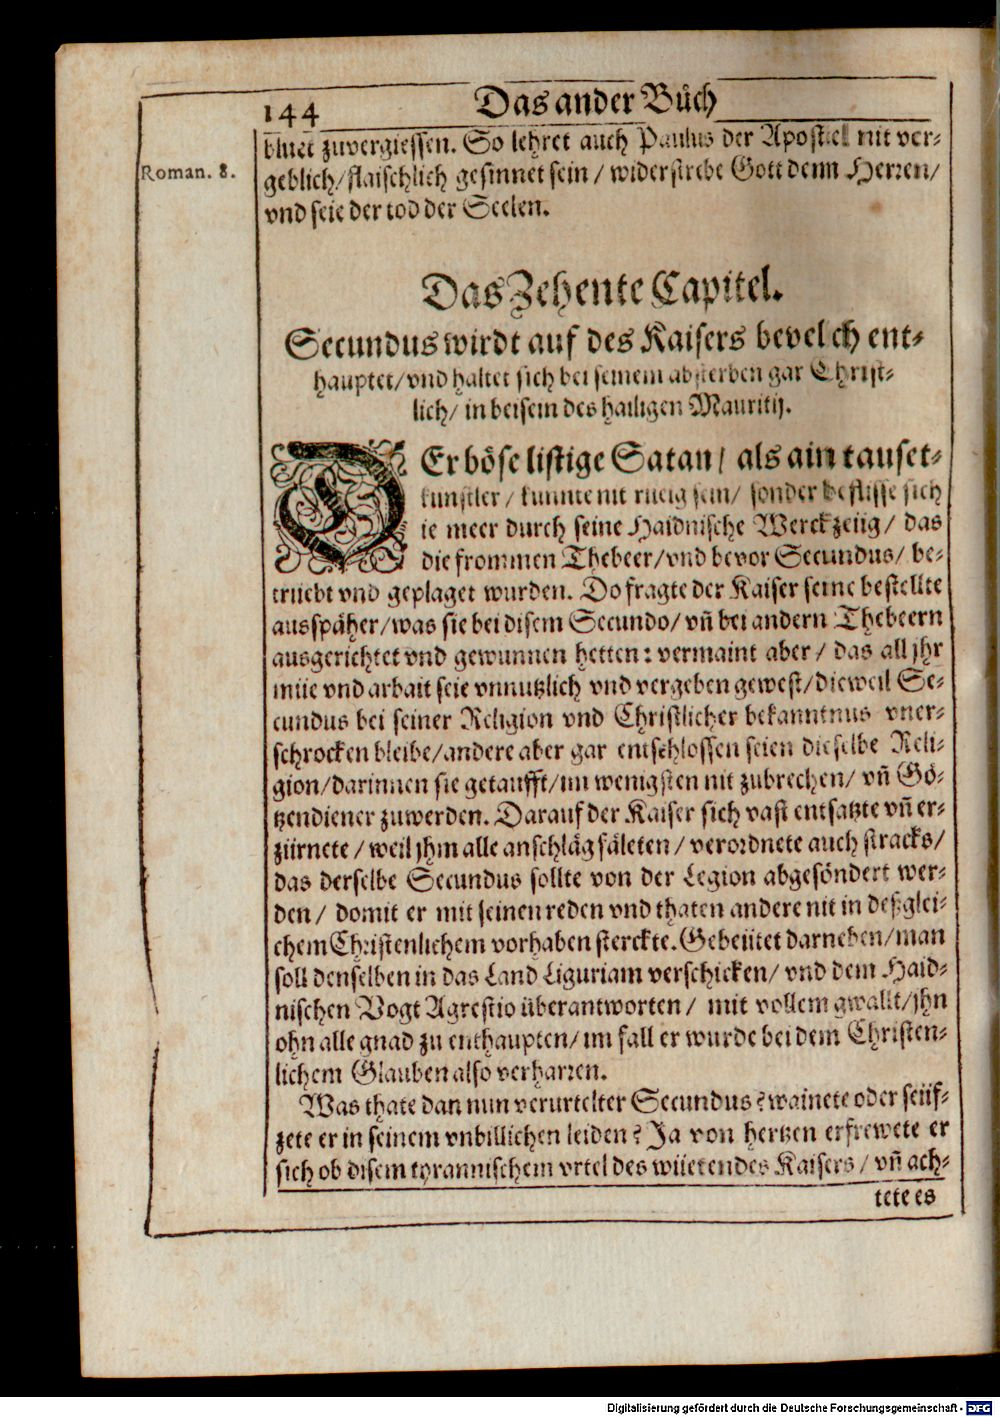 144 Das ander Büch
bluet zuvergiessen. So lehret auch Paulus der Apostel nit ver-
Roman. 8.
geblich/ flaischlich gesinnet sein / widerstrebe Gott dem Herren/
vnd seie der tod der Seelen.
Das Zehente Capitel.
Secundus wirdt auf des Kaisers bevelch ent-
hauptet/ vnd haltet sich bei seinem absterben gar Christ-
lich/ in beisein des hailigen Mauritij.
DEr böse listige Satan/ als ain tauset-
künstler / kunnte nit rüeig sein/ sonder beflisse sich
ie meer durch seine Haidnische Werckzeüg/ das
die frommen Thebeer/ vnd bevor Secundus/ be-
trüebt vnd geplaget wurden. Do fragte der Kaiser seine bestellte
ausspäher/ was sie bei disem Secundo/ vñ bei andern Thebeern
ausgerichtet vnd gewunnen hetten: vermaint aber / das all jhr
müe vnd arbait seie vnnutzlich vnd vergeben gewest/ dieweil Se-
cundus bei seiner Religion vnd Christlicher bekanntnus vner-
schrocken bleibe/ andere aber gar entschlossen seien dieselbe Reli-
gion/ darinnen sie getaufft/ im wenigsten nit zubrechen/ vñ Gö-
tzendiener zuwerden. Darauf der Kaiser sich vast entsatzte vñ er-
zürnete / weil jhm alle anschläg fäleten / verordnete auch stracks/
das derselbe Secundus sollte von der Legion abgesöndert wer-
den / domit er mit seinen reden vnd thaten andere nit in deßglei-
chem Christenlichem vorhaben sterckte. Gebeütet darneben/ man
soll denselben in das Land Liguriam verschicken/ vnd dem Haid-
nischen Vogt Agrestio überantworten / mit vollem gwallt/ jhn
ohn alle gnad zu enthaupten/ im fall er wurde bei dem Christen-
lichem Glauben also verharren.
Was thate dan nun verurtelter Secundus? wainete oder seüf-
zete er in seinem vnbillichen leiden? Ja von hertzen erfrewete er
sich ob disem tyrannischem vrtel des wüetendes Kaisers / vñ ach-
tete es
Digitalisierung gefördert durch die Deutsche Forschungsgemeinschaft - DFG